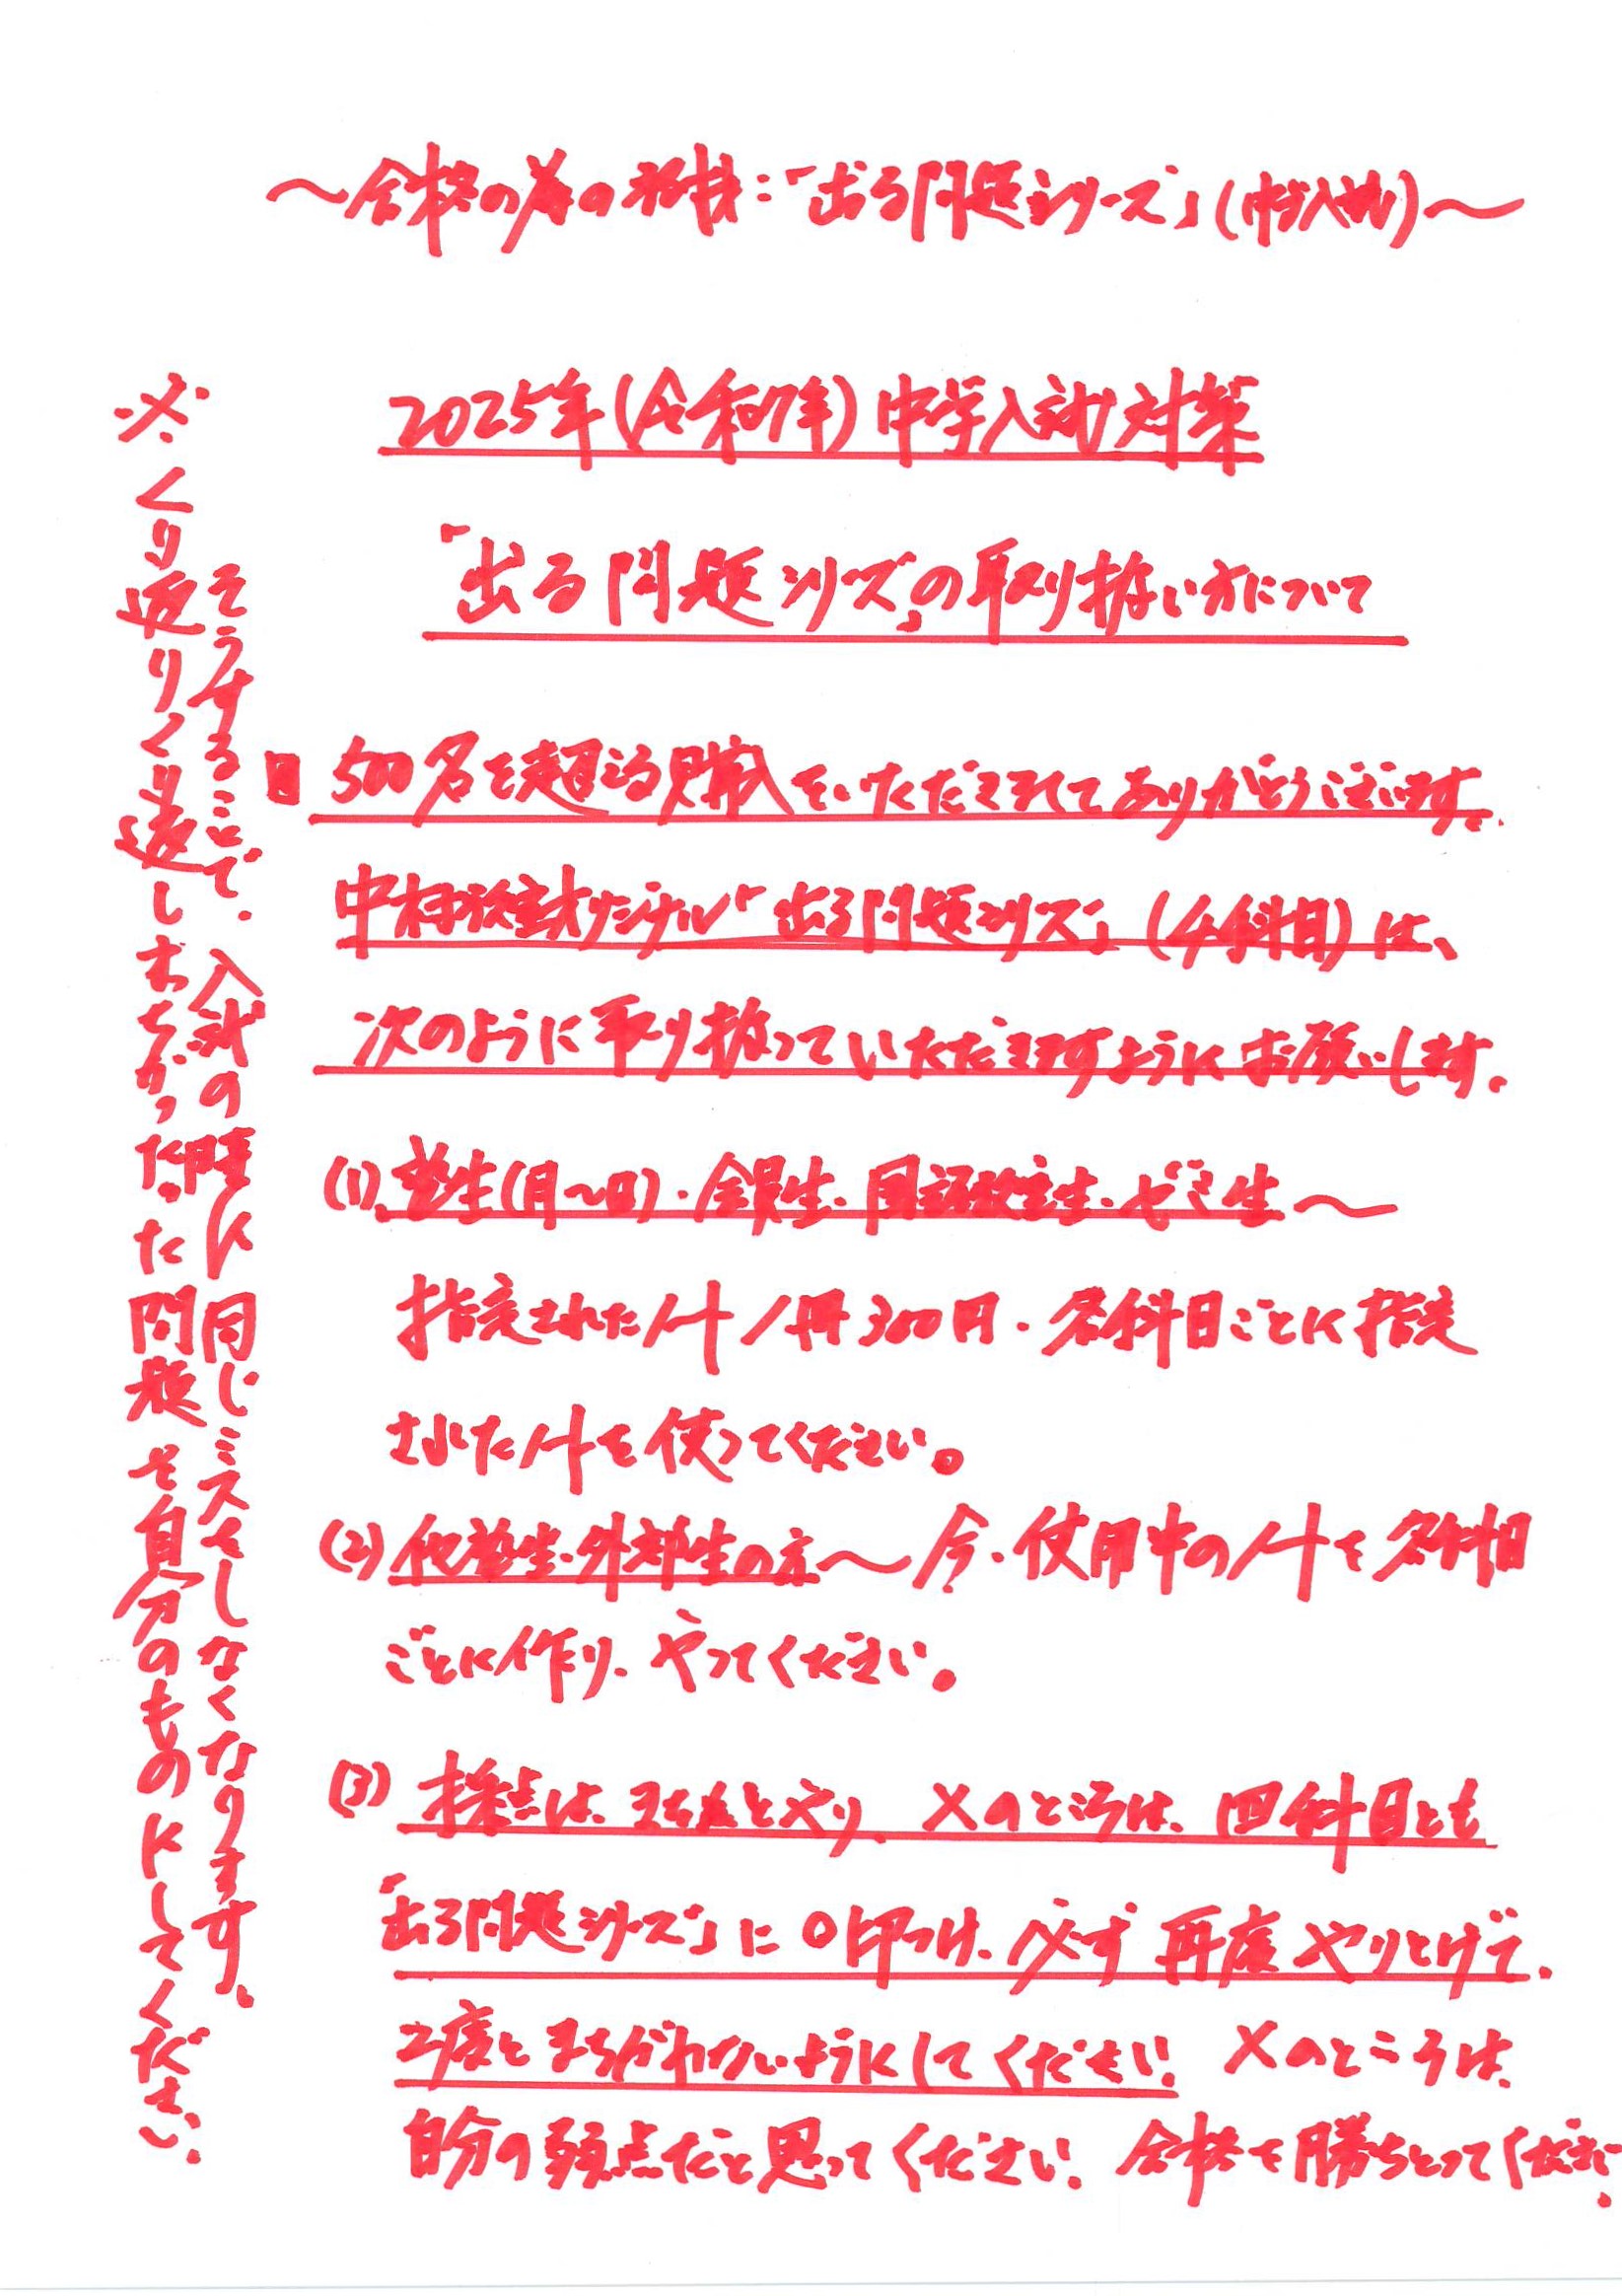 ～合格の為の教材：「出る問題シリーズ」(中学入試)～
2025年(令和7年)中学入試対策
「出る問題シリーズ」の取り扱い方について
500名を超える購入をいただきましてありがとうございます。
中村教室オリジナル「出る問題シリーズ」(4科目)は、
次のように取り扱っていただきますようにお願いします。
(1)塾生(月～日)・会員生・国語教室生・ゼミ生～
指定されたノート1冊300円・各科目ごとに指定
されたノートを使ってください。
(2)他塾生・外部生の方～今、使用中のノートを各科目
ごとに作り、やってください。
(3)採点は、きちんとやり、×のところは、四科目とも
「出る問題シリーズ」に○印つけ、必ず再度やりとげて、
2度とまちがわないようにしてください。×のところは、
自分の弱点だと思ってください。合格を勝ちとってください。
※くり返しくり返しまちがった問題を自分のものにしてください。
そうすることで、入試の時に同じミスをしなくなります。